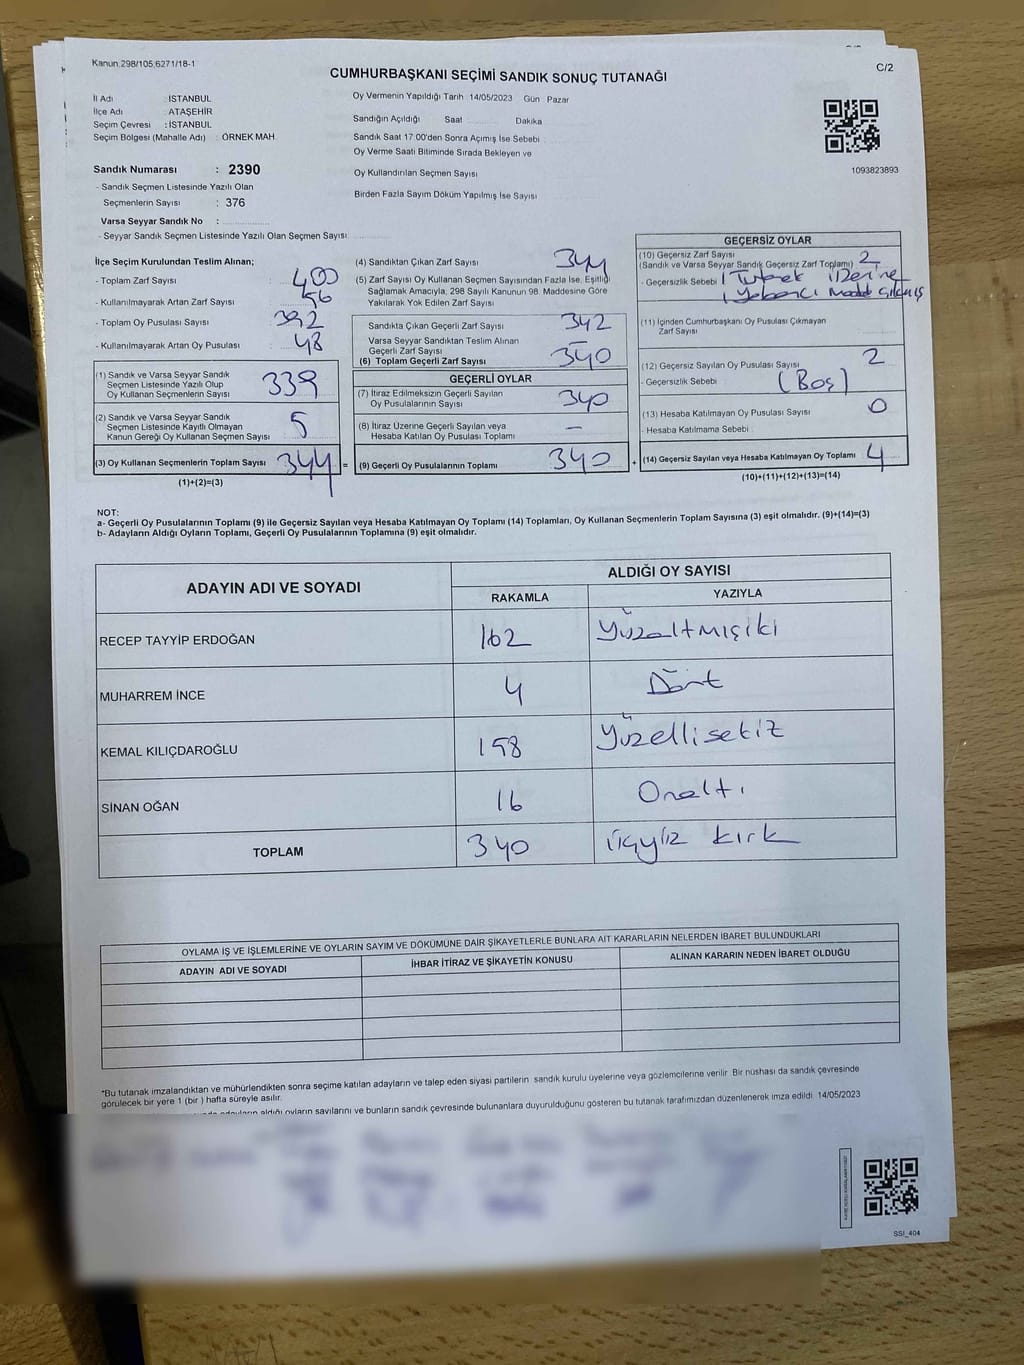 Kanun;298/105,6271/18-1
C/2
CUMHURBAŞKANI SEÇİMİ SANDIK SONUÇ TUTANAĞI
İl Adı : İSTANBUL
İlçe Adı : ATAŞEHİR
Seçim Çevresi : İSTANBUL
Seçim Bölgesi (Mahalle Adı) : ÖRNEK MAH.
Sandık Numarası : 2390
- Sandık Seçmen Listesinde Yazılı Olan
Seçmenlerin Sayısı : 376
Varsa Seyyar Sandık No :
- Seyyar Sandık Seçmen Listesinde Yazılı Olan Seçmen Sayısı:
Oy Vermenin Yapıldığı Tarih 14/05/2023 Gün Pazar
Sandığın Açıldığı Saat Dakika
Sandık Saat 17.00'den Sonra Açımış İse Sebebi :
Oy Verme Saati Bitiminde Sırada Bekleyen ve
Oy Kullandırılan Seçmen Sayısı
Birden Fazla Sayım Döküm Yapılmış İse Sayısı
1093823893
İlçe Seçim Kurulundan Teslim Alınan;
- Toplam Zarf Sayısı : 400
- Kullanılmayarak Artan Zarf Sayısı : 56
- Toplam Oy Pusulası Sayısı : 392
- Kullanılmayarak Artan Oy Pusulası : 48
(1) Sandık ve Varsa Seyyar Sandık
Seçmen Listesinde Yazılı Olup
Oy Kullanan Seçmenlerin Sayısı 339
(2) Sandık ve Varsa Seyyar Sandık
Seçmen Listesinde Kayıtlı Olmayan
Kanun Gereği Oy Kullanan Seçmen Sayısı 5
(3) Oy Kullanan Seçmenlerin Toplam Sayısı 344 =
(1)+(2)=(3)
(4) Sandıktan Çıkan Zarf Sayısı 344
(5) Zarf Sayısı Oy Kullanan Seçmen Sayısından Fazla İse, Eşitliği
Sağlamak Amacıyla, 298 Sayılı Kanunun 98. Maddesine Göre
Yakılarak Yok Edilen Zarf Sayısı
Sandıkta Çıkan Geçerli Zarf Sayısı 342
Varsa Seyyar Sandıktan Teslim Alınan
Geçerli Zarf Sayısı
(6) Toplam Geçerli Zarf Sayısı 340
GEÇERLİ OYLAR
(7) İtiraz Edilmeksizin Geçerli Sayılan
Oy Pusulalarının Sayısı 340
(8) İtiraz Üzerine Geçerli Sayılan veya
Hesaba Katılan Oy Pusulası Toplamı –
(9) Geçerli Oy Pusulalarının Toplamı 340 +
GEÇERSİZ OYLAR
(10) Geçersiz Zarf Sayısı 2
(Sandık ve Varsa Seyyar Sandık Geçersiz Zarf Toplamı)
- Geçersizlik Sebebi 1 Tutanak Üzerine
1 Yabancı Madde Çıkmış
(11) İçinden Cumhurbaşkanı Oy Pusulası Çıkmayan
Zarf Sayısı
(12) Geçersiz Sayılan Oy Pusulası Sayısı 2
- Geçersizlik Sebebi (Boş)
(13) Hesaba Katılmayan Oy Pusulası Sayısı 0
- Hesaba Katılmama Sebebi :
(14) Geçersiz Sayılan veya Hesaba Katılmayan Oy Toplamı 4
(10)+(11)+(12)+(13)=(14)
NOT:
a- Geçerli Oy Pusulalarının Toplamı (9) ile Geçersiz Sayılan veya Hesaba Katılmayan Oy Toplamı (14) Toplamları, Oy Kullanan Seçmenlerin Toplam Sayısına (3) eşit olmalıdır. (9)+(14)=(3)
b- Adayların Aldığı Oyların Toplamı, Geçerli Oy Pusulalarının Toplamına (9) eşit olmalıdır.
ADAYIN ADI VE SOYADI
ALDIĞI OY SAYISI
RAKAMLA YAZIYLA
RECEP TAYYİP ERDOĞAN 162 Yüzaltmışiki
MUHARREM İNCE 4 Dört
KEMAL KILIÇDAROĞLU 158 Yüzellisekiz
SİNAN OĞAN 16 Onaltı
TOPLAM 340 üçyüz kırk
OYLAMA İŞ VE İŞLEMLERİNE VE OYLARIN SAYIM VE DÖKÜMÜNE DAİR ŞİKAYETLERLE BUNLARA AİT KARARLARIN NELERDEN İBARET BULUNDUKLARI
ADAYIN ADI VE SOYADI İHBAR İTİRAZ VE ŞİKAYETİN KONUSU ALINAN KARARIN NEDEN İBARET OLDUĞU
*Bu tutanak imzalandıktan ve mühürlendikten sonra seçime katılan adayların ve talep eden siyasi partilerin sandık kurulu üyelerine veya gözlemcilerine verilir. Bir nüshası da sandık çevresinde
görülecek bir yere 1 (bir ) hafta süreyle asılır.
adayların aldığı oyların sayılarını ve bunların sandık çevresinde bulunanlara duyurulduğunu gösteren bu tutanak tarafımızdan düzenlenerek imza edildi. 14/05/2023
SSI_404